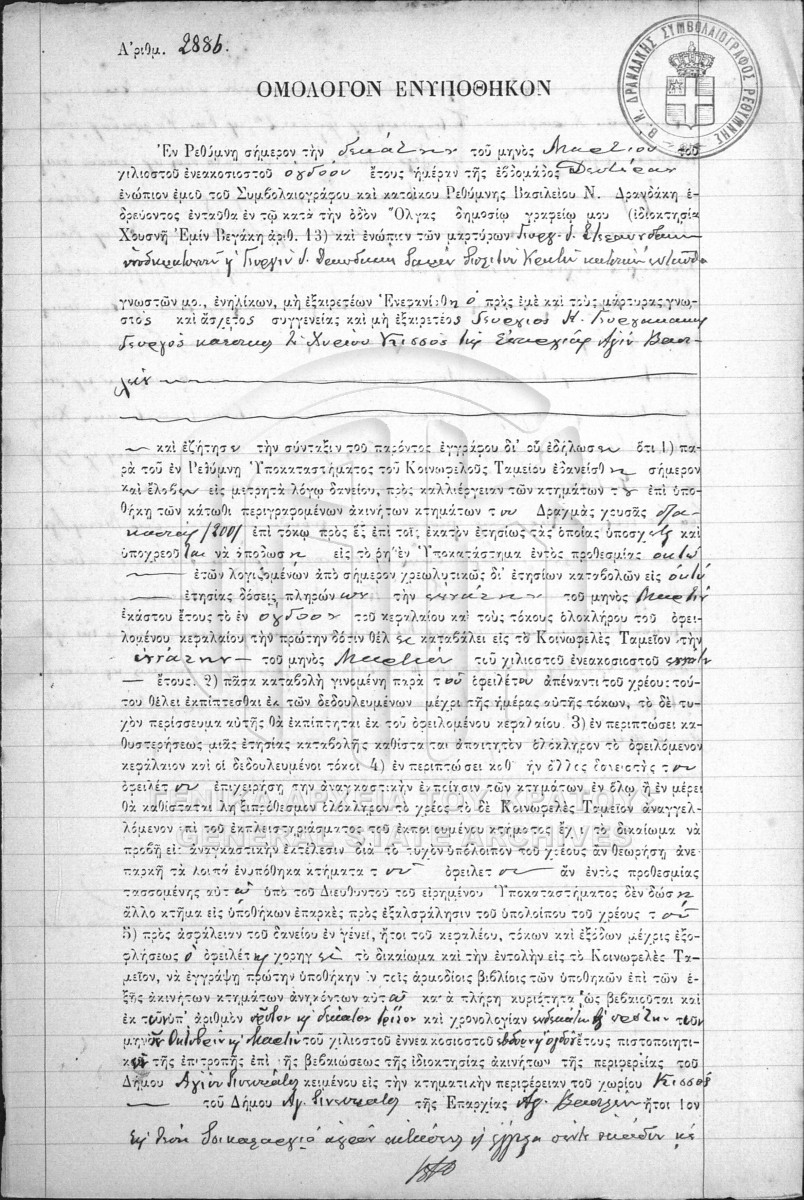 Β. Ν. ΔΡΑΝΔΑΚΗΣ ΣΥΜΒΟΛΑΙΟΓΡΑΦΟΣ ΡΕΘΥΜΝΗΣ
Ἀριθμ. 2886.
ΟΜΟΛΟΓΟΝ ΕΝΥΠΟΘΗΚΟΝ
Ἐν Ρεθύμνῃ σήμερον τὴν δεκάτην τοῦ μηνὸς Μαρτίου τοῦ
χιλιοστοῦ ἐνεακοσιοστοῦ ὀγδόου ἔτους ἡμέραν τῆς ἑβδομάδος Δευτέραν
ἐνώπιον ἐμοῦ τοῦ Συμβολαιογράφου καὶ κατοίκου Ρεθύμνης Βασιλείου Ν. Δρανδάκη ἑ-
δρεύοντος ἐνταῦθα ἐν τῷ κατὰ τὴν ὁδὸν Ὄλγας δημοσίῳ γραφείῳ μου (ἰδιοκτησία
Χουσνῆ Ἐμὶν Βεγάκη ἀριθ. 13) καὶ ἐνώπιον τῶν μαρτύρων
γνωστῶν μο., ἐνηλίκων, μὴ ἐξαιρετέων Ἐνεφανίσθη ὁ πρὸς ἐμὲ καὶ τοὺς μάρτυρας γνω-
στὸς καὶ ἄσχετος συγγενείας καὶ μὴ ἐξαιρετέος Γεώργιος
Γεωργὸς κάτοικος τοῦ Χωρίου Κισσὸς τῆς Ἐπαρχίας Ἁγίου Βασι-
λείου
καὶ ἐζήτησεν τὴν σύνταξιν τοῦ παρόντος ἐγγράφου δι' οὗ ἐδήλωσεν ὅτι 1) πα-
ρὰ τοῦ ἐν Ρεθύμνῃ Ὑποκαταστήματος τοῦ Κοινωφελοῦς Ταμείου ἐδανείσθη σήμερον
καὶ ἔλαβεν εἰς μετρητὰ λόγῳ δανείου, πρὸς καλλιέργειαν τῶν κτημάτων του ἐπὶ ὑπο-
θήκῃ τῶν κάτωθι περιγραφομένων ἀκινήτων κτημάτων του Δραχμὰς χρυσᾶς δια-
κοσίας /200/ ἐπὶ τόκῳ πρὸς ἓξ ἐπὶ τοῖς ἑκατὸν ἐτησίως τὰς ὁποίας ὑποσχεται καὶ
ὑποχρεοῦται νὰ ἀποδώσῃ εἰς τὸ ρηθὲν Ὑποκατάστημα ἐντὸς προθεσμίας ὀκτὼ
ἐτῶν λογιζομένων ἀπὸ σήμερον χρεωλυτικῶς δι' ἐτησίων καταβολῶν εἰς ὀκτὼ
ἐτησίας δόσεις πληρώνων τὴν ἐννάτην τοῦ μηνὸς Μαρτίου
ἑκάστου ἔτους τὸ ἓν ὄγδοον τοῦ κεφαλαίου καὶ τοὺς τόκους ὁλοκλήρου τοῦ ὀφει-
λομένου κεφαλαίου τὴν πρώτην δόσιν θέλει καταβάλει εἰς τὸ Κοινωφελὲς Ταμεῖον τὴν
ἐννάτην τοῦ μηνὸς Μαρτίου τοῦ χιλιοστοῦ ἐνεακοσιοστοῦ ἐννάτου
ἔτους. 2) πᾶσα καταβολὴ γινομένη παρὰ τοῦ ὀφειλέτου ἀπέναντι τοῦ χρέους τού-
του θέλει ἐκπίπτεσθαι ἐκ τῶν δεδουλευμένων μέχρι τῆς ἡμέρας αὐτῆς τόκων, τὸ δὲ τυ-
χὸν περίσσευμα αὐτῆς θὰ ἐκπίπτηται ἐκ τοῦ ὀφειλομένου κεφαλαίου. 3) ἐν περιπτώσει κα-
θυστερήσεως μιᾶς ἐτησίας καταβολῆς καθίσταται ἀπαιτητὸν ὁλόκληρον τὸ ὀφειλόμενον
κεφάλαιον καὶ οἱ δεδουλευμένοι τόκοι 4) ἐν περιπτώσει καθ' ἣν ἄλλος δανειστὴς του
ὀφειλέτου ἐπιχειρήσῃ τὴν ἀναγκαστικὴν ἐκποίησιν τῶν κτημάτων ἐν ὅλῳ ἢ ἐν μέρει
θὰ καθίσταται ληξιπρόθεσμον ὁλόκληρον τὸ χρέος τὸ δὲ Κοινωφελὲς Ταμεῖον ἀναγγελ-
λόμενον ἐπὶ τοῦ ἐκπλειστηριάσματος τοῦ ἐκποιουμένου κτήματος ἔχει τὸ δικαίωμα νὰ
προβῇ εἰς ἀναγκαστικὴν ἐκτέλεσιν διὰ τὸ τυχὸν ὑπόλοιπον τοῦ χρέους ἂν θεωρήσῃ ἀνε-
παρκῆ τὰ λοιπὰ ἐνυπόθηκα κτήματα τοῦ ὀφειλέτου ἂν ἐντὸς προθεσμίας
τασσομένης αὐτῷ ὑπὸ τοῦ Διευθυντοῦ τοῦ εἰρημένου Ὑποκαταστήματος δὲν δώσῃ
ἄλλο κτῆμα εἰς ὑποθήκων ἐπαρκὲς πρὸς ἐξασφάλησιν τοῦ ὑπολοίπου τοῦ χρέους του
5) πρὸς ἀσφάλειαν τοῦ δανείου ἐν γένει, ἤτοι τοῦ κεφαλέου, τόκων καὶ ἐξόδων μέχρις ἐξο-
φλήσεως ὁ ὀφειλέτης χορηγεῖ τὸ δικαίωμα καὶ τὴν ἐντολὴν εἰς τὸ Κοινωφελὲς Τα-
μεῖον, νὰ ἐγγράψῃ πρώτην ὑποθήκην ἐν τοῖς ἁρμοδίοις βιβλίοις τῶν ὑποθηκῶν ἐπὶ τῶν ἑ-
ξῆς ἀκινήτων κτημάτων ἀνηκόντων αὐτῷ κατὰ πλήρη κυριότητα ὡς βεβαιοῦται καὶ
ἐκ τῶν ὑπ' ἀριθμὸν πρῶτον κ' δέκατον τρίτον καὶ χρονολογίαν ἑνδεκάτην κ' πρώτην τῶν
μηνῶν Ὀκτωβρίου κ' Μαρτίου τοῦ χιλιοστοῦ ἐννεακοσιοστοῦ ἑβδόμου κ' ὀγδόου ἔτους πιστοποιητι-
κῶν τῆς ἐπιτροπῆς ἐπὶ τῆς βεβαιώσεως τῆς ἰδιοκτησίας ἀκινήτων τῆς περιφερείας τοῦ
Δήμου Ἁγίου Πνεύματος κειμένου εἰς τὴν κτηματικὴν περιφέρειαν τοῦ χωρίου Κισσὸς
τοῦ Δήμου Ἁγ. Πνεύματος τῆς Ἐπαρχίας Ἁγ. Βασιλείου ἤτοι 1ον
ΓΕΝΙΚΑ ΑΡΧΕΙΑ ΤΟΥ ΚΡΑΤΟΥΣ
GENERAL STATE ARCHIVES